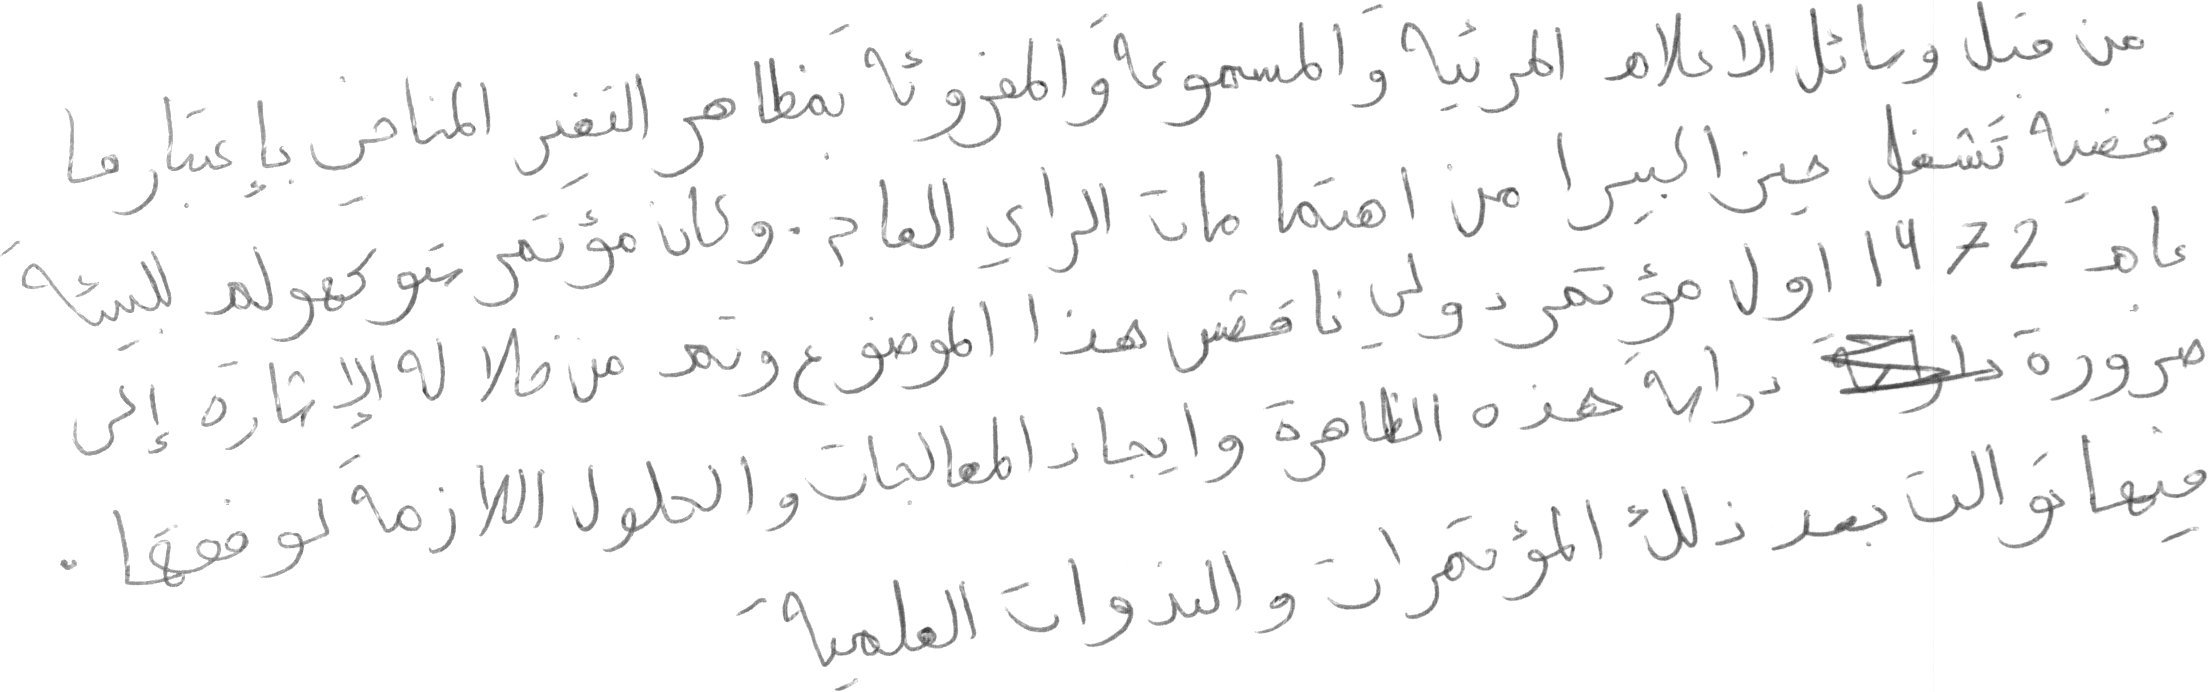 من قبل وسائل الاعلام المرئية والمسموعة والمقروئة بمظاهر التغير المناخي بإعتبارها
قضية تشغل حيزا كبيرا من اهتمامات الراي العام . وكان مؤتمر ستوكهولم للبيئة
عام 1972 اول مؤتمر دولي ناقش هذا الموضوع وتم من خلاله الإشارة إلى
ضرورة دراسة هذه الظاهرة وايجاد المعالجات والحلول اللازمة لوقفها .
فيها توالت بعد ذلك المؤتمرات والندوات العلمية